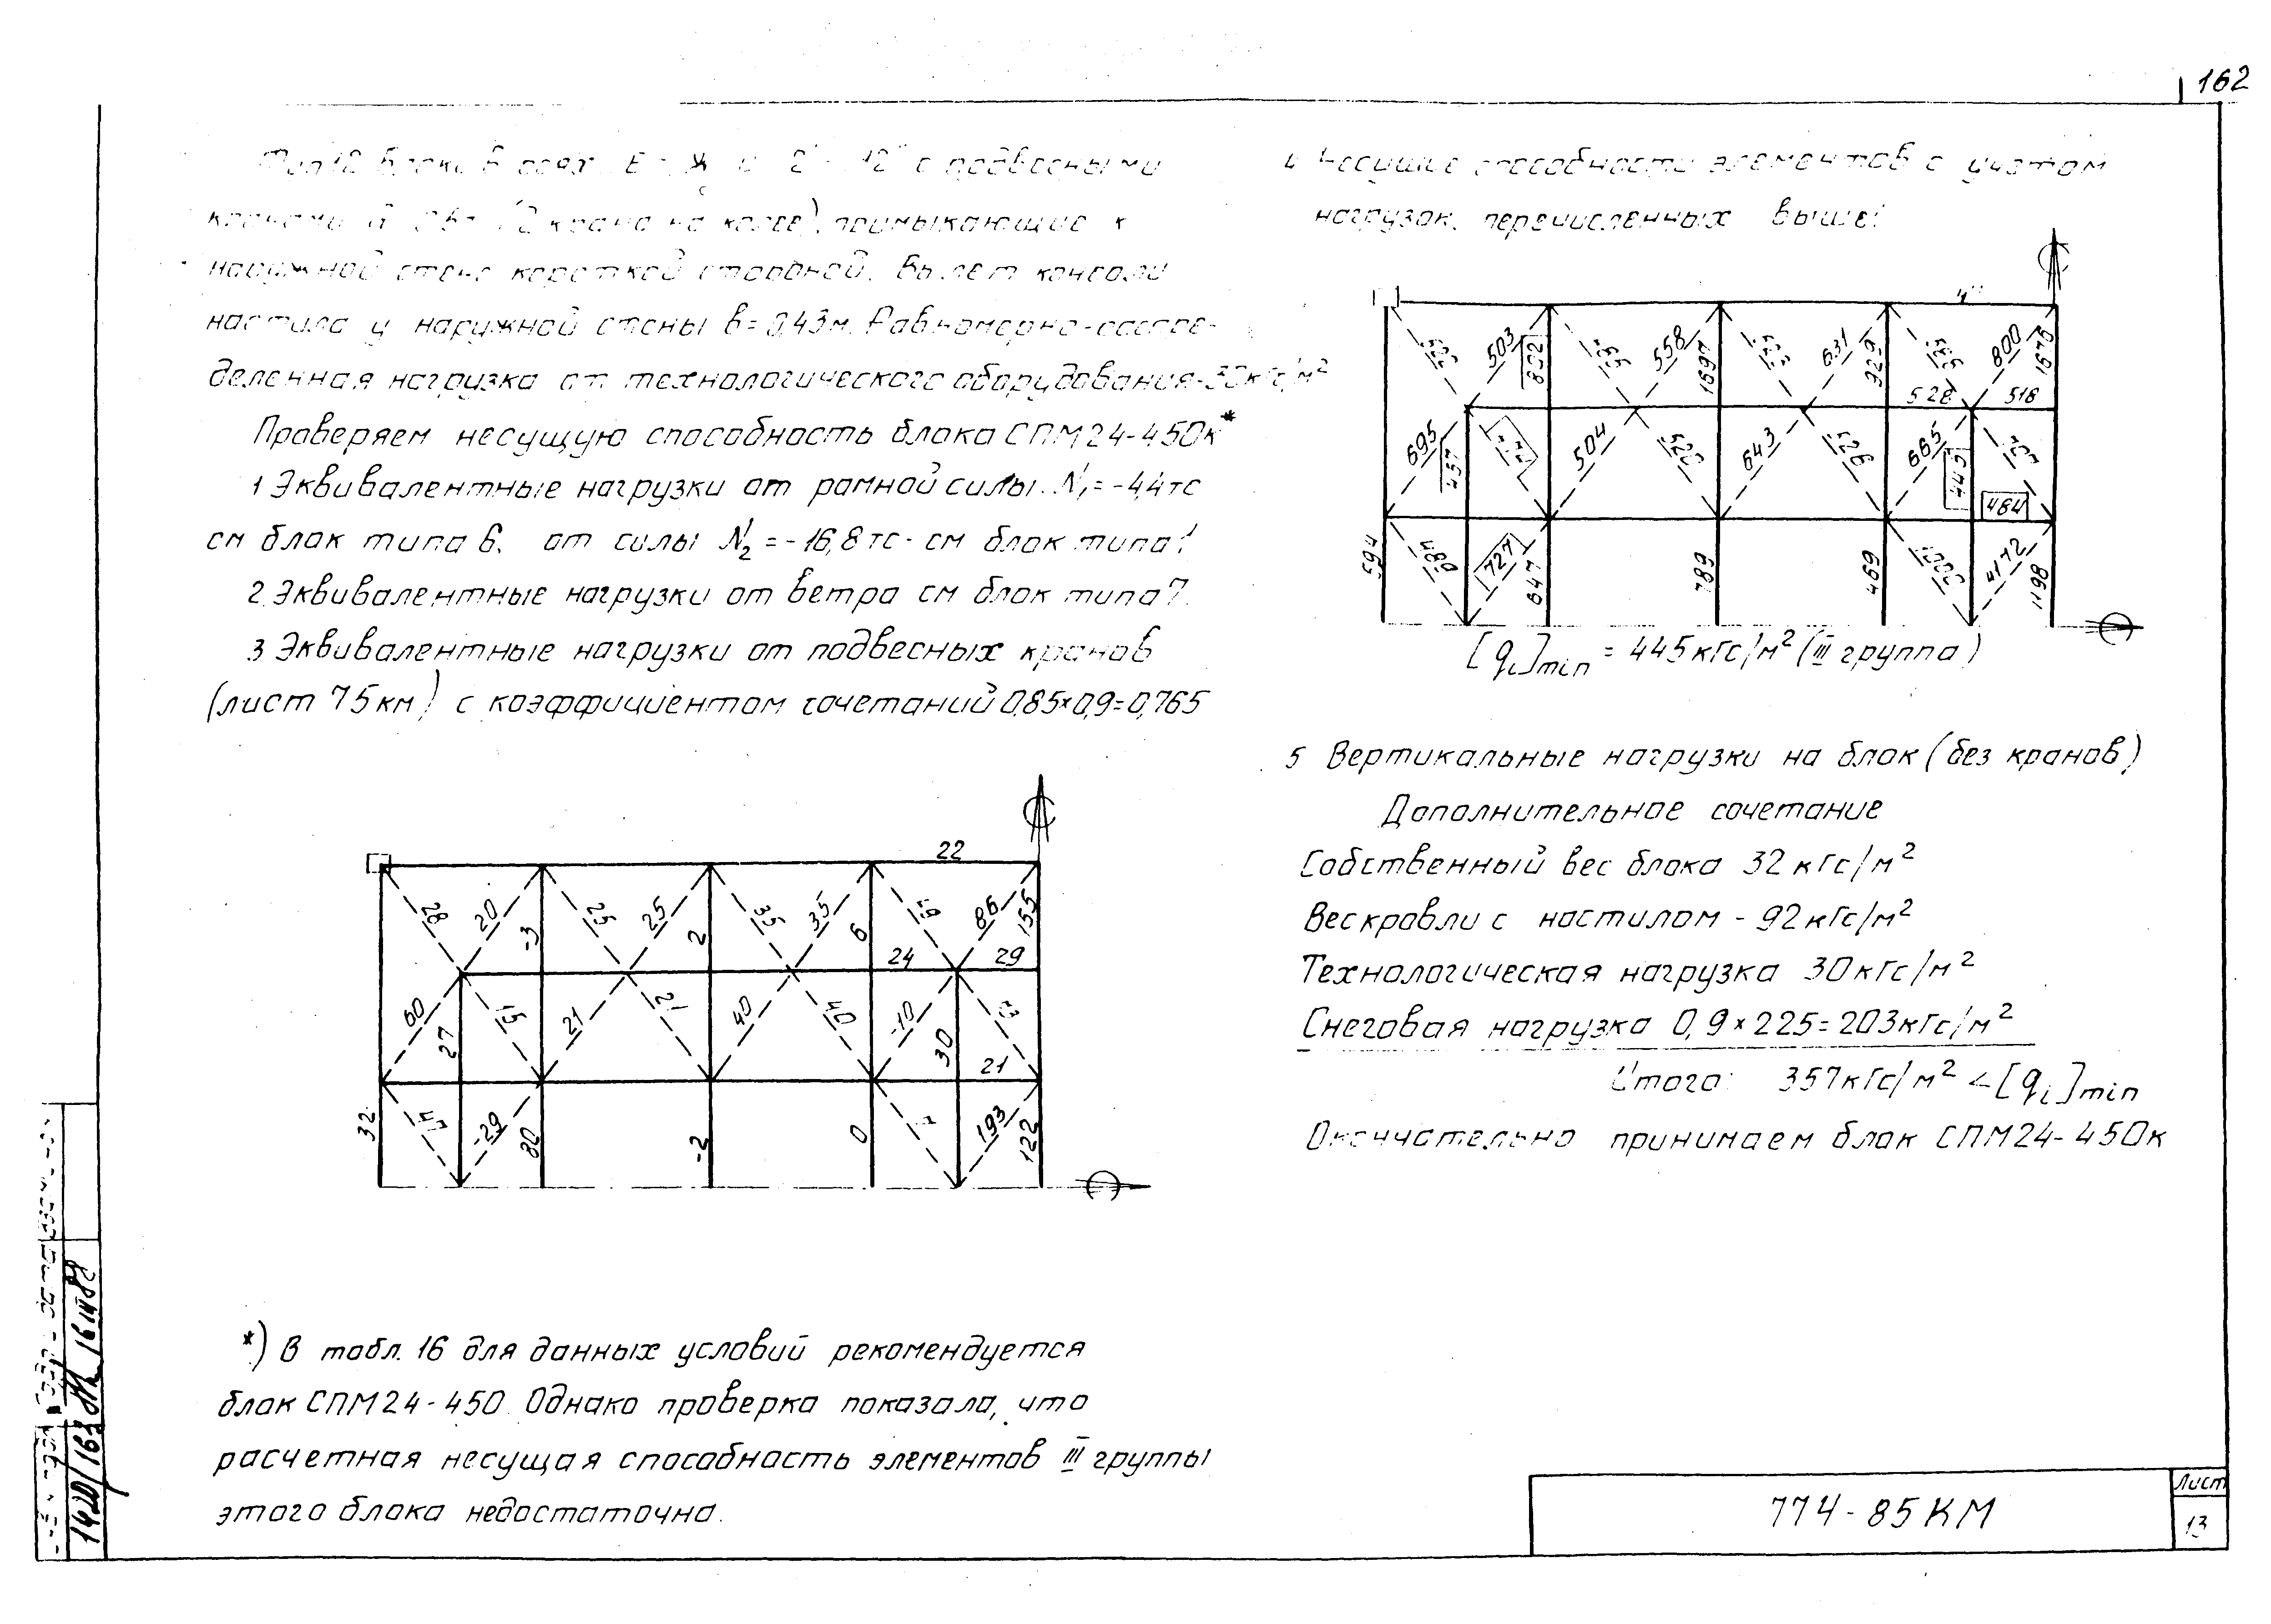 162
Тип 12 Блоки в осях
с подвесными
кранами (2 крана на колее), примыкающие к
наружной стене короткой стороной. Вылет консоли
настила у наружной стены в = 0,43м. Равномерно-распре-
деленная нагрузка от технологического оборудования-30кгс/м²
Проверяем несущую способность блока СПМ24-450к*
1 Эквивалентные нагрузки от рамной силы N₁ = -4,4тс
см блок типа 6, от силы N₂ = -16,8тс - см блок типа 1
2. Эквивалентные нагрузки от ветра см блок типа 7.
3 Эквивалентные нагрузки от подвесных кранов
(лист 75км) с коэффициентом сочетаний 0,85×0,9=0,765
22
28 20 -3 25 25 2 35 35 6 49 86 155
24 29
60 27 15 21 21 40 40 -10 30 13
21
32 -29 80 -2 0 193 122
*) В табл. 16 для данных условий рекомендуется
блок СПМ24-450. Однако проверка показала, что
расчетная несущая способность элементов III группы
этого блока недостаточна.
4 Несущие способности элементов с учетом
нагрузок, перечисленных выше:
503 832 558 1697 631 929 800 1676
528 518
695 457 504 522 643 526 665 445
484
594 480 727 647 789 469 4172 1198
[qᵢ]min = 445кгс/м² (III группа)
5 Вертикальные нагрузки на блок (без кранов)
Дополнительное сочетание
Собственный вес блока 32 кгс/м²
Вес кровли с настилом - 92кгс/м²
Технологическая нагрузка 30кгс/м²
Снеговая нагрузка 0,9×225=203кгс/м²
Итого: 357кгс/м² < [qᵢ]min
Окончательно принимаем блок СПМ24-450к
774-85КМ
Лист
13